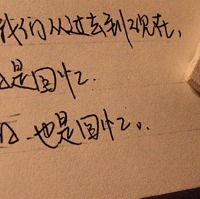 我们从过去到现在，
是回忆.
也是回忆。